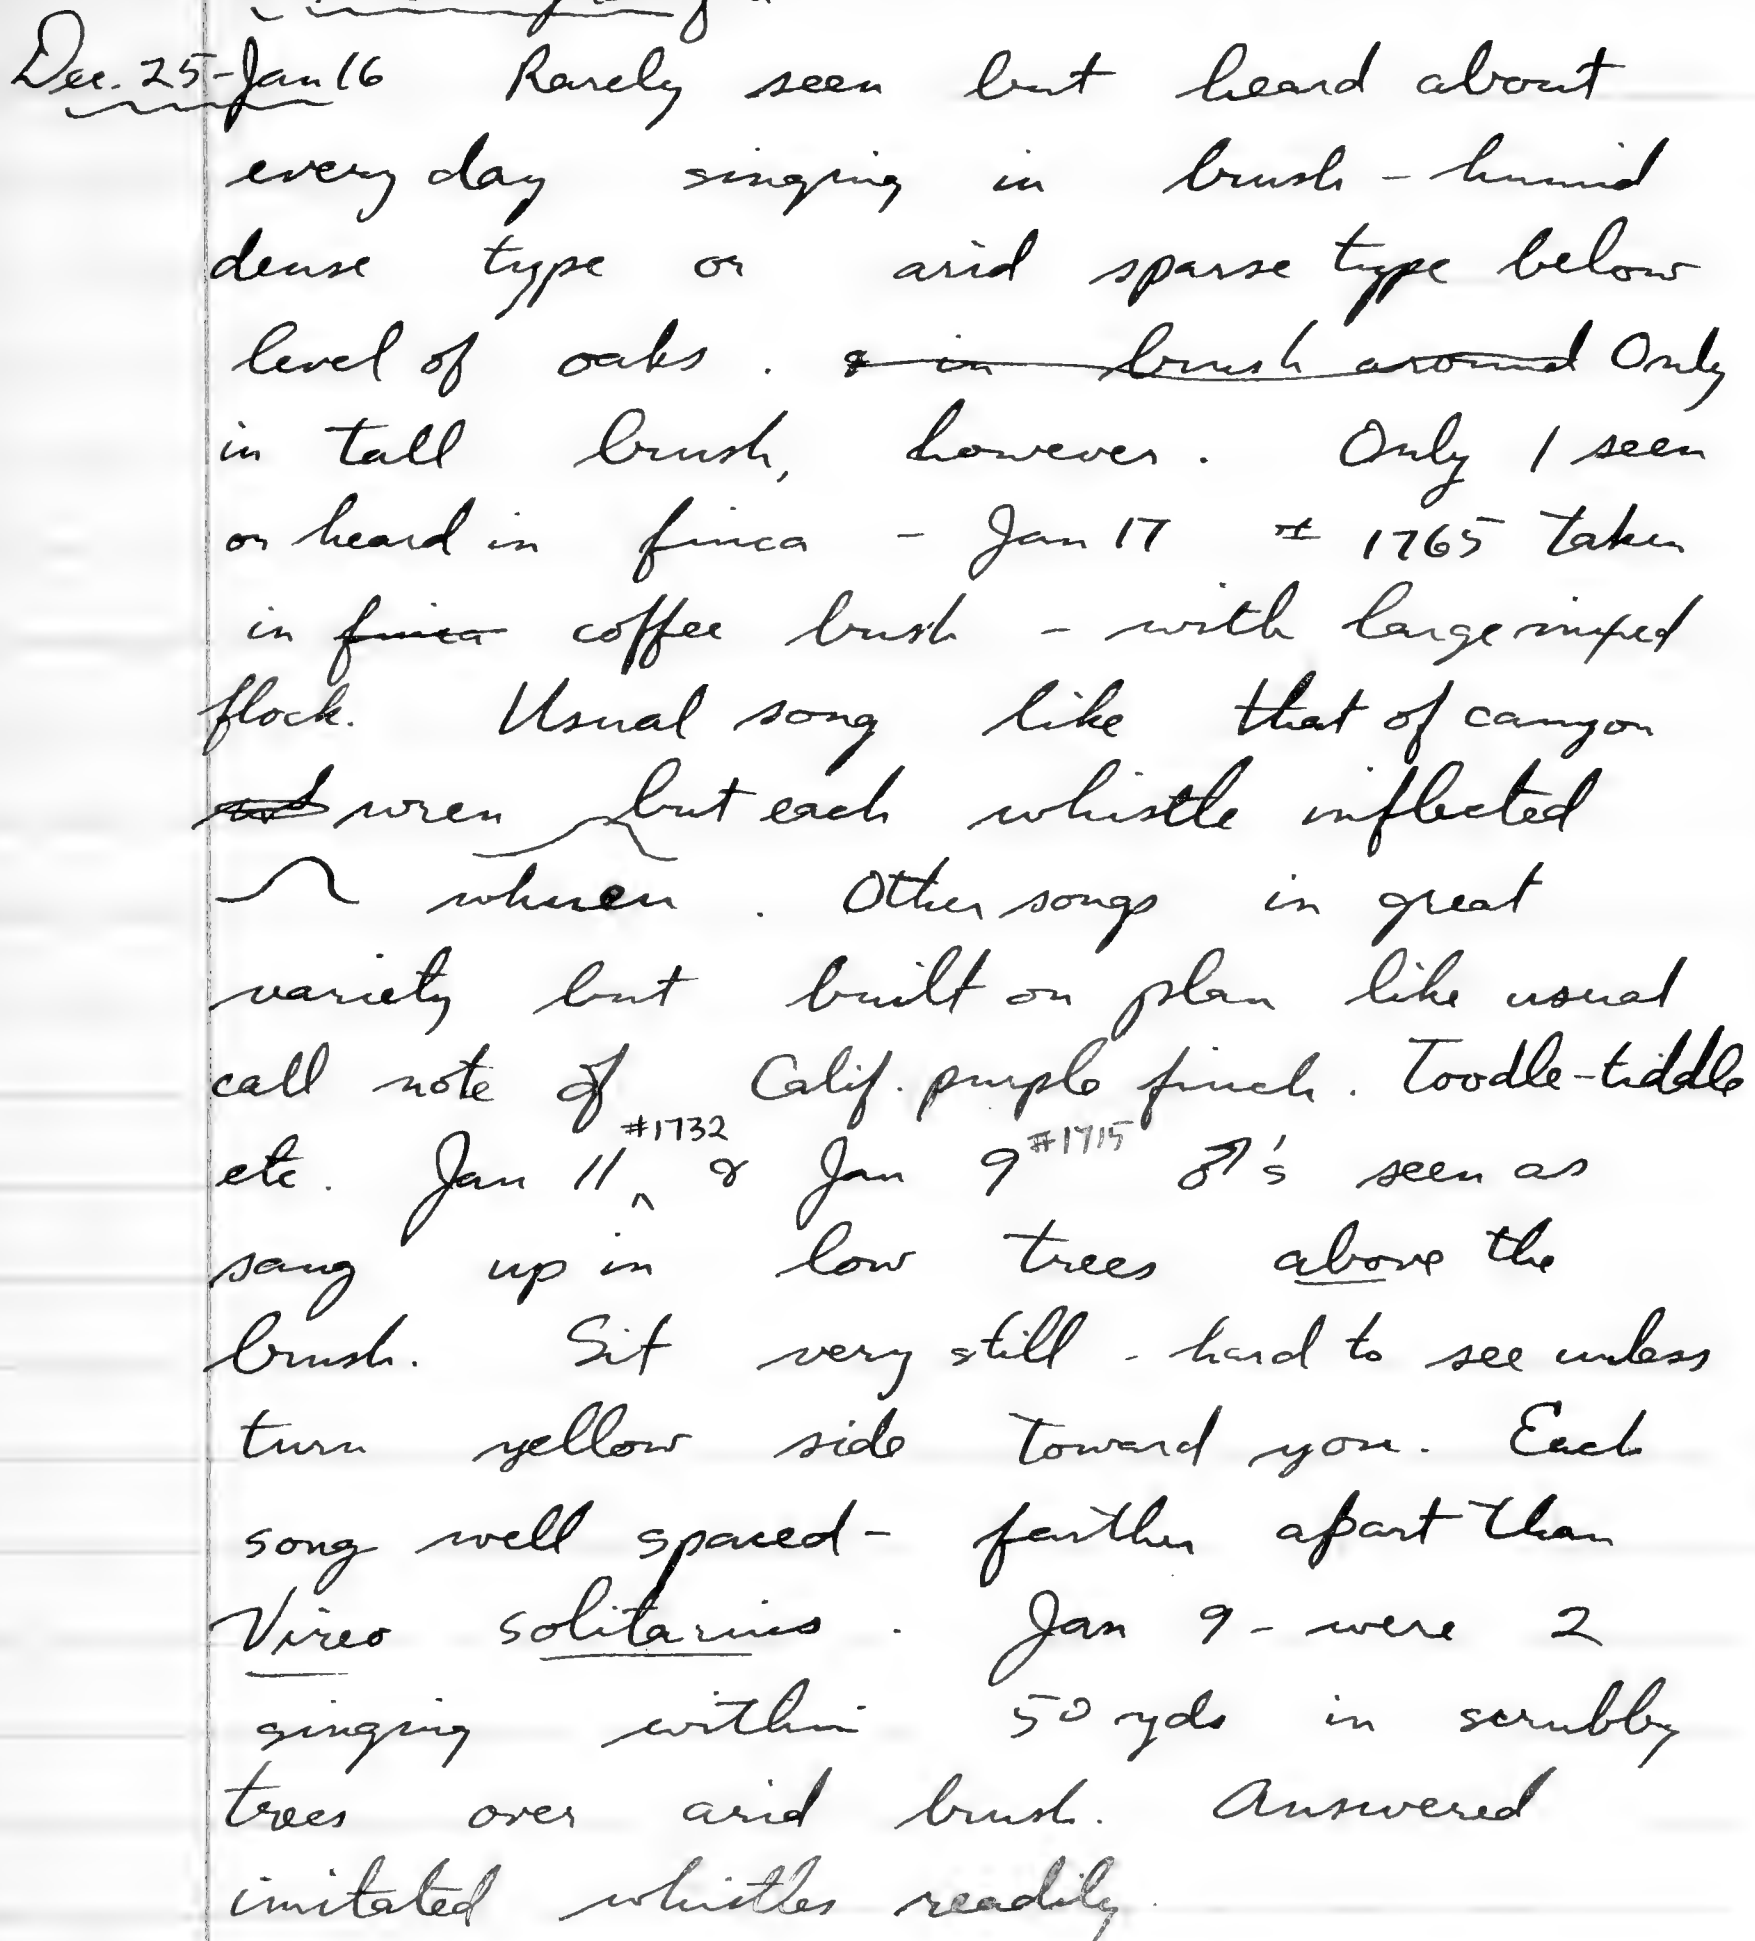 Dec. 25-Jan 16 Rarely seen but heard about
every day singing in brush - humid
dense type or arid sparse type below
level of oaks. & in brush around Only
in tall brush, however. Only 1 seen
or heard in finca - Jan 17 # 1765 taken
in finca coffee brush - with large mixed
flock. Usual song like that of canyon
wren but each whistle inflected
. Other songs in great
variety but built on plan like usual
call note of Calif. purple finch. Toodle-tiddle
etc. Jan 11 #1732 & Jan 9 #1715 ♂'s seen as
sang up in low trees above the
brush. Sit very still - hard to see unless
turn yellow side toward you. Each
song well spaced - farther apart than
Vireo solitarius. Jan 9 - were 2
singing within 50 yds in scrubby
trees over arid brush. Answered
imitated whistles readily.